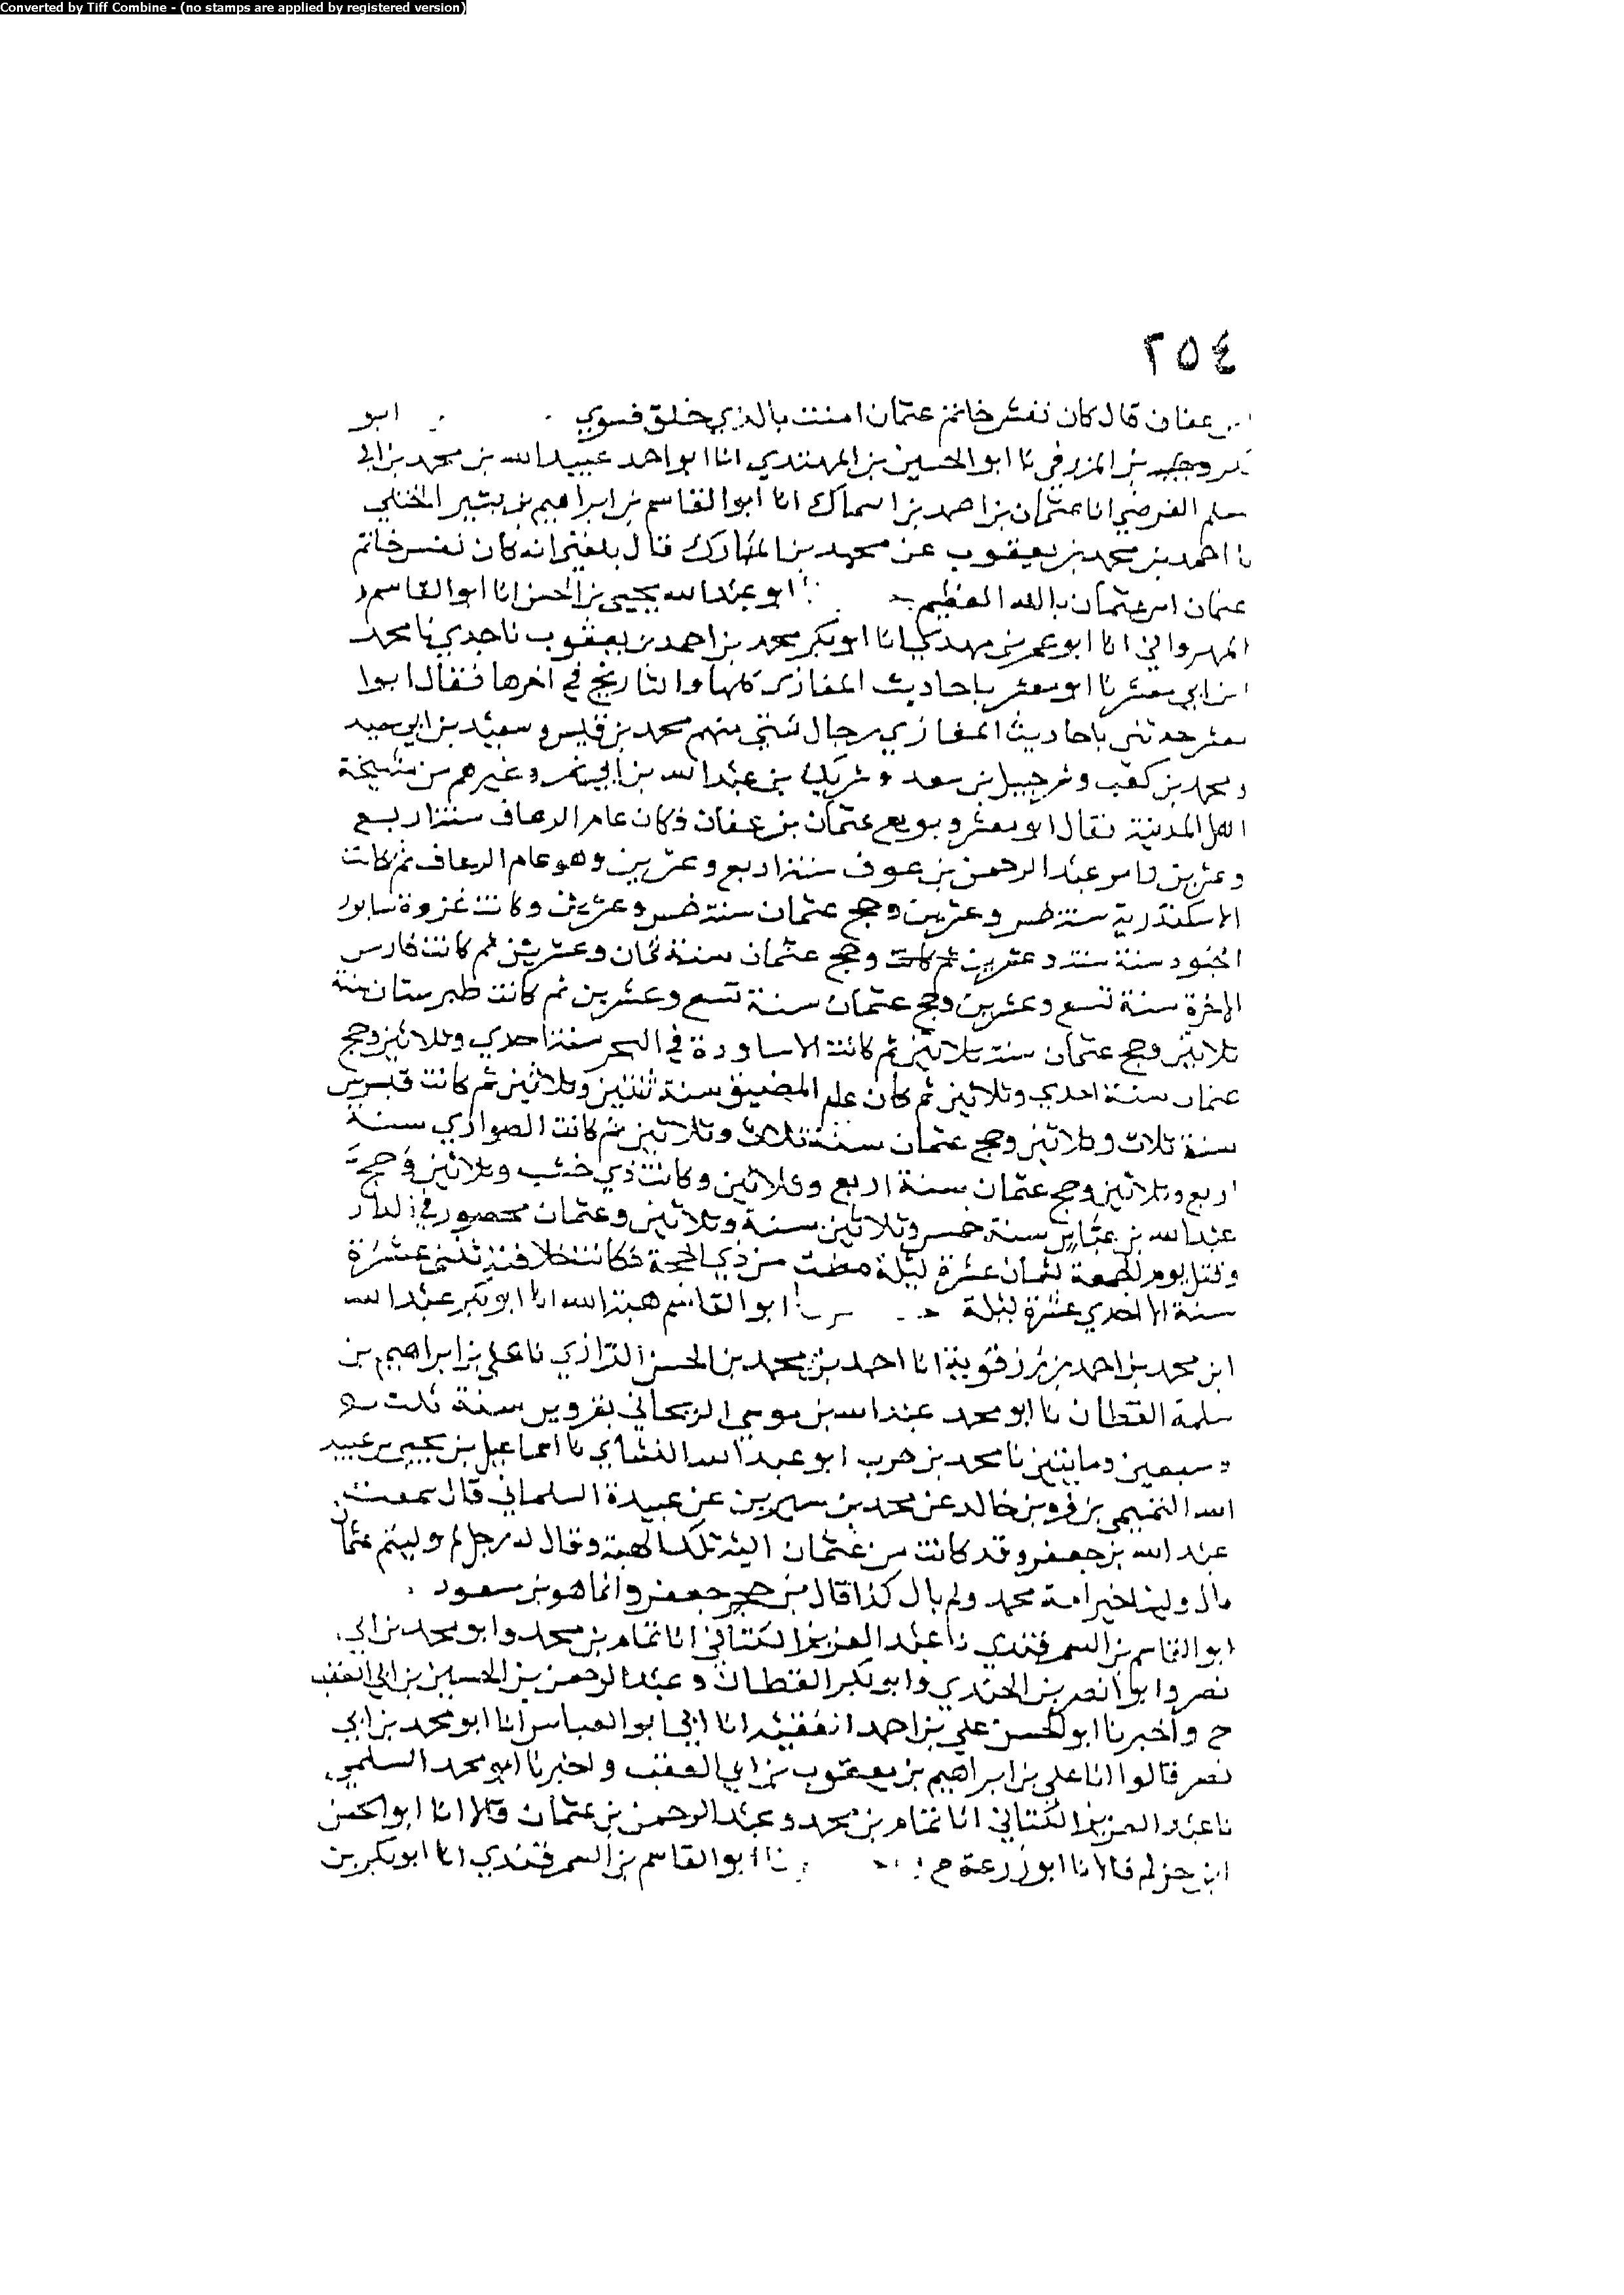 Converted by Tiff Combine - (no stamps are applied by registered version)
٢٥٤
بن عفان قال كان نقش خاتم عثمان امنت بالذي خلق فسوي ابو
بكر وجيه بن المزرفي نا ابو الحسين بن المهتدي انا ابو احمد عبيد الله بن محمد بن ابي
مسلم الفرضي انا عثمان بن احمد بن السماك انا ابو القاسم بن ابراهيم بن بشير الختلي
نا احمد بن محمد بن يعقوب عن محمد بن المبارك قال بلغني انه كان نقش خاتم
عثمان امن عثمان بالله العظيم ابو عبد الله يحيى بن الحسن انا ابو القاسم
المهرواني انا ابو عمر بن مهدي انا ابو بكر محمد بن احمد بن يعقوب نا جدي نا محمد
ابن ابي معشر نا ابو معشر باحاديث المغازي كلها والتاريخ في اخرها فقال ابوا
معشر حدثني باحاديث المغازي رجال شتى منهم محمد بن قيس و سعيد بن ابي سعيد
و محمد بن كعب و شرحبيل بن سعد و شريك بن عبد الله بن ابي نمر و غيرهم من مشيخة
اهل المدينة فقال ابو معشر وبويع عثمان بن عفان فكان عام الرعاف سنة اربع
وعشرين فامر عبد الرحمن بن عوف سنة اربع وعشرين وهو عام الرعاف ثم كانت
الاسكندرية سنة خمس وعشرين وحج عثمان سنة خمس وعشرين وكانت غزوة سابور
الجنود سنة ست وعشرين ثم كانت وحج عثمان سنة ثمان وعشرين ثم كانت فارس
الاخرة سنة تسع وعشرين وحج عثمان سنة تسع وعشرين ثم كانت طبرستان سنة
ثلاثين وحج عثمان سنة ثلاثين ثم كانت الاساودة في البحر سنة احدي وثلاثين وحج
عثمان سنة احدي وثلاثين ثم كان علم المضيق سنة ثنتين وثلاثين ثم كانت قبرس
سنة ثلاث وثلاثين وحج عثمان سنة ثلاث وثلاثين ثم كانت الصواري سنة
اربع وثلاثين وحج عثمان سنة اربع وثلاثين وكانت ذي خشب وثلاثين في حجة
عبد الله بن عباس سنة خمس وثلاثين سنة وثلاثين وعثمان محصور في الدار
وقتل يوم الجمعة لثمان عشرة ليلة مضت من ذي الحجة فكانت خلافته ثنتى عشرة
سنة الا احدي عشرة ليلة ابو القاسم هبة الله انا ابو بكر عبد الله
ابن محمد بن احمد بن رزقوية انا احمد بن محمد بن الحسن الرازي نا علي بن ابراهيم بن
سلمة القطان نا ابو محمد عبد الله بن موسي الزنجاني بقزوين سنة ثلث
وسبعين ومايتين نا محمد بن حرب ابو عبد الله النشاي نا اسماعيل بن يحيى بن عبيد
الله التميمي بن قرة بن خالد عن محمد بن سيرين عن عبيدة السلماني قال سمعت
عبد الله بن جعفر وقد كانت من عثمان اليه تلك الهبة وقال له رجل لم وليتم عثمان
مال ولينا خير امة محمد ولم يال كذا قال بن جعفر وانما هو بن مسعود
ابو القاسم بن السمرقندي نا عبد العزيز الكتاني انا تمام بن محمد وابو محمد بن ابي
نصر وابوا نصر بن الجندي وابو بكر القطان وعبد الرحمن بن الحسين بن ابي العقب
ح واخبرنا ابو الحسن علي بن احمد الفقيه انا ابي ابو العباس انا ابو محمد بن ابي
نصر قالوا انا علي بن ابراهيم بن يعقوب بن ابي العقب واخبرنا ابو محمد السلمي
نا عبد العزيز الكتاني انا تمام بن محمد وعبد الرحمن بن عثمان قالا انا ابو الحسن
ابن حزلم قالا نا ابو زرعة ح نا ابو القاسم بن السمرقندي انا ابو بكر بن